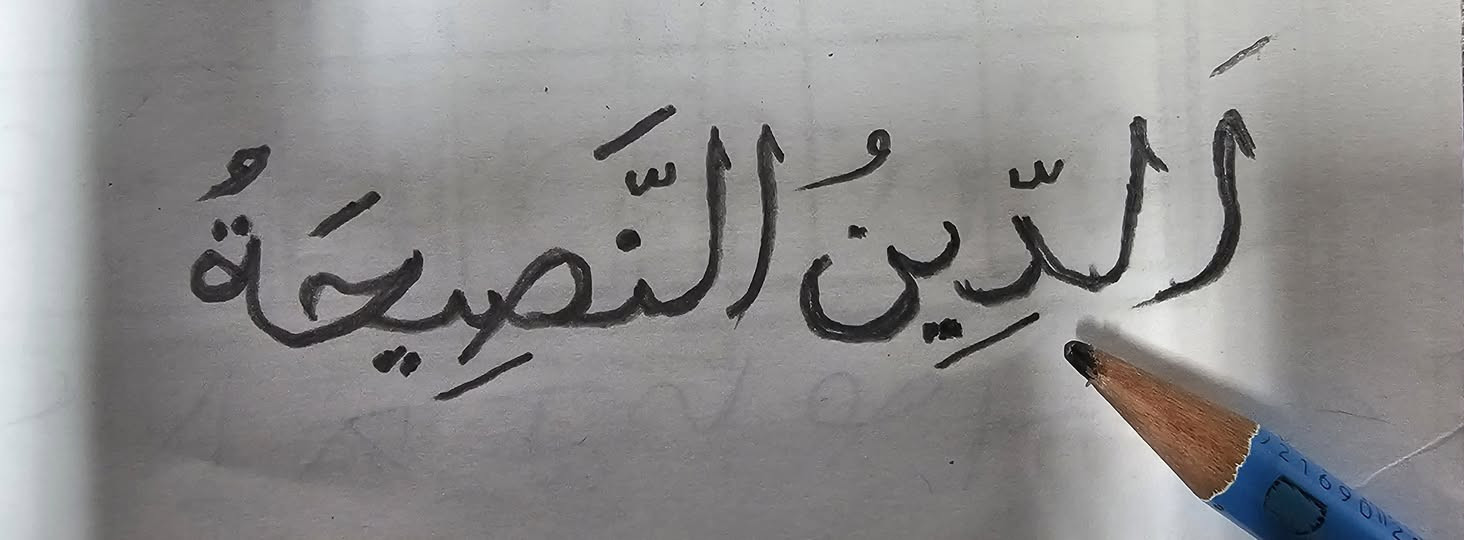 اَلدِّينُ النَّصِيحَةُ
21690112